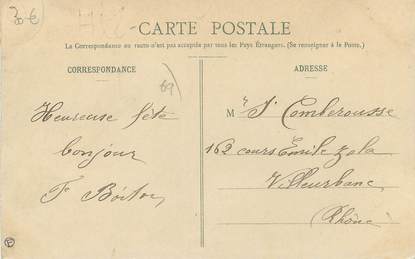 30 €
CARTE POSTALE
La Correspondance au recto n'est pas acceptée par tous les Pays Étrangers. (Se renseigner à la Poste.)
CORRESPONDANCE
69
Heureuse fête
bonjour
F
ADRESSE
M Comberousse
162 cours Emile Zola
Villeurbanne
Rhône